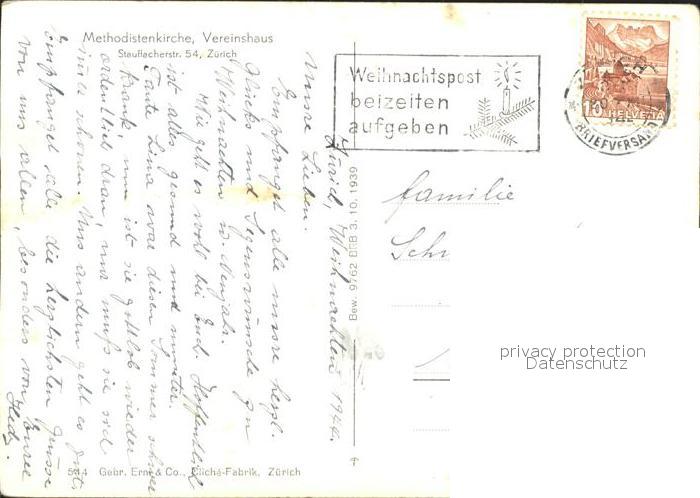 Methodistenkirche, Vereinshaus
Stauffacherstr. 54, Zürich
Weihnachtspost
beizeiten
aufgeben
10
HELVETIA
BRIEFVERSAND
Zürich, Weihnachten 1944.
Unsre Lieben.
Empfanget alle unsre herzl.
Glücks und Segenswünsche zu
Weihnachten u. Neujahr.
Wie geht es wohl bei Euch. Hoffentlich
ist alles gesund und munter.
Tante Lina war diesen Sommer schwer
krank, nun ist sie gottlob wieder
ordentlich dran, nur muß sie sich
immer schonen. Uns andern geht es gut.
Empfanget alle die herzlichsten Grüsse
von uns allen, besonders von Eurer
Hedy.
Bew. 9762 BRB 3. 10. 1939
Familie
Sch
privacy protection
Datenschutz
Gebr. Erni & Co., Cliché-Fabrik, Zürich